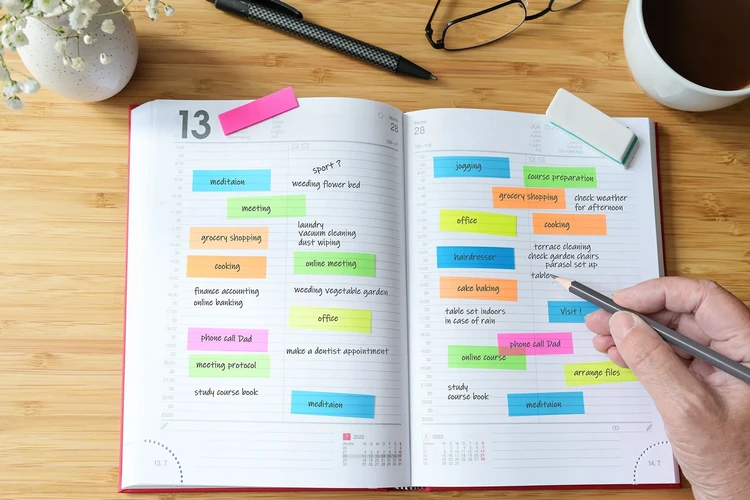 13
28
sport ?
meditaion
weeding flower bed
meeting
laundry
vacuum cleaning
dust wiping
grocery shopping
cooking
online meeting
finance accounting
online banking
weeding vegetable garden
office
phone call Dad
make a dentist appointment
meeting protocol
study course book
meditaion
2022
13. 7.
28
jogging
course preparation
grocery shopping
check weather
for afternoon
office
cooking
terrace cleaning
check garden chairs
parasol set up
table
hairdresser
cake baking
table set indoors
in case of rain
Visit !
phone call Dad
online course
arrange files
study
course book
meditaion
2022
14. 7.